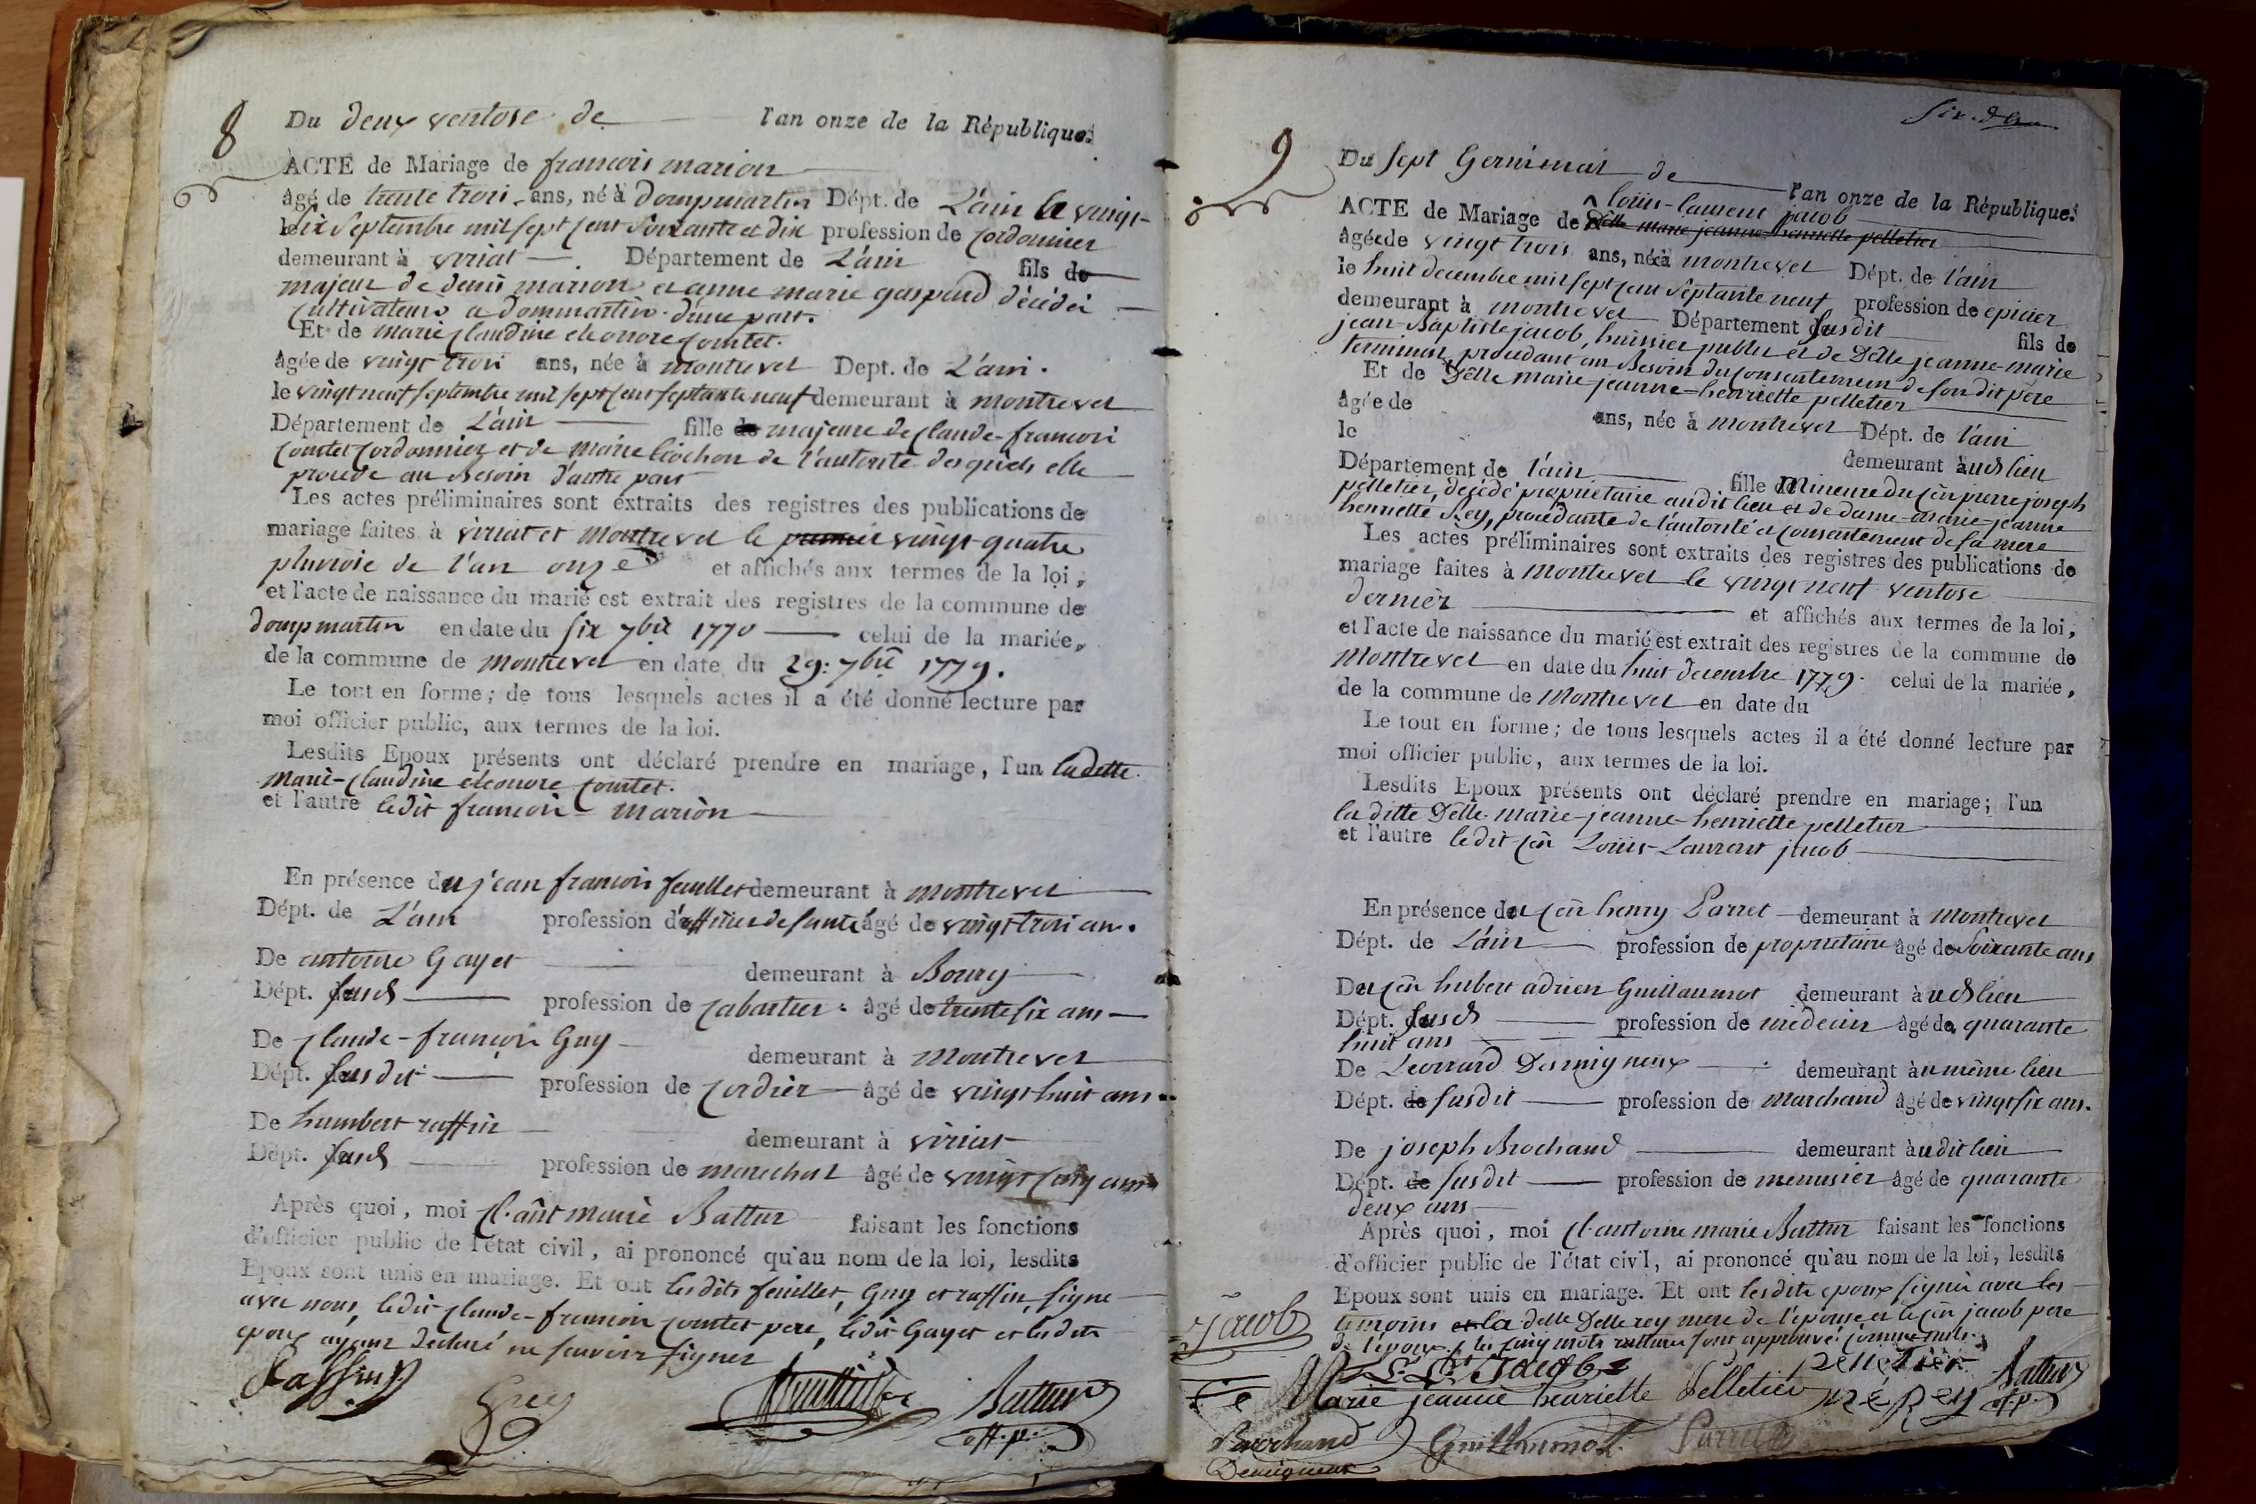 8
Du deux ventose de l'an onze de la République.
ACTE de Mariage de francois marion
âgé de trente trois ans, né à dompmartin Dépt. de L'ain le vingt-
le six Septembre mil sept cent soixante et dix profession de cordonnier
demeurant à viriat Département de L'ain fils de
majeur de denis marion et anne marie gaspard décédés
cultivateurs a dommartin d'une part.
Et de marie claudine eleonore comtet.
âgée de vingt trois ans, née à montrevel Dept. de L'ain.
le vingt neuf septembre mil sept cent septante neuf demeurant à montrevel
Département de L'ain fille de majeure de claude-francois
comtet cordonnier et de marie Cochon de l'autorité desquels elle
procede au Besoin d'autre part
Les actes préliminaires sont extraits des registres des publications de
mariage faites à viriat et montrevel le premier vingt-quatre
pluviose de l'an onze et affichés aux termes de la loi,
et l'acte de naissance du marié est extrait des registres de la commune de
dompmartin en date du six 7bre 1770 celui de la mariée,
de la commune de montrevel en date du 29: 7bre 1779.
Le tout en forme; de tous lesquels actes il a été donné lecture par
moi officier public, aux termes de la loi.
Lesdits Epoux présents ont déclaré prendre en mariage, l'un ladette
marie-claudine eleonore comtet.
et l'autre ledit francois marion
En présence du jean francois feuillet demeurant à montrevel
Dépt. de L'ain profession d'officier de santé âgé de vingt trois ans.
De antoine Gayet demeurant à Bourg
Dépt. susd profession de cabartier âgé de trente six ans
De claude-francois Guy demeurant à montrevel
Dépt. susdit profession de cordier âgé de vingt huit ans
De humbert raffin demeurant à viriat
Dépt. susd profession de marechal âgé de vingt cinq ans
Après quoi, moi cl. ant marie Battur faisant les fonctions
d'officier public de l'état civil, ai prononcé qu'au nom de la loi, lesdits
Epoux sont unis en mariage. Et ont lesdits feuillet, Guy et raffin, signé
avec nous, ledit claude-francois comtet pere, ledit Gayet et lesdits
epoux ayant declaré ne scavoir signer
Raffin Guy Battur
off. p.
9
Du sept Germinal de l'an onze de la République.
louis-laurent jacob
ACTE de Mariage de Delle marie jeanne henriette pelletier
âgée de vingt trois ans, née à montrevel Dépt. de l'ain
le huit decembre mil sept cent septante neuf profession de epicier
demeurant à montrevel Département susdit fils de
jean-Baptiste jacob, huissier public et de Delle jeanne-marie
procedant au Besoin du consentement de son dit père
Et de Delle marie jeanne-henriette pelletier
âgée de ans, née à montrevel Dépt. de l'ain
le demeurant àud lieu
Département de l'ain fille de mineure du cen pierre joseph
pelletier, decédé proprietaire audit lieu et de dame marie-jeanne
henriette Rey, procedante de l'autorité et consentement de sa mere
Les actes préliminaires sont extraits des registres des publications de
mariage faites à montrevel le vingt neuf ventose
dernier et affichés aux termes de la loi,
et l'acte de naissance du marié est extrait des registres de la commune de
montrevel en date du huit decembre 1779. celui de la mariée,
de la commune de montrevel en date du
Le tout en forme; de tous lesquels actes il a été donné lecture par
moi officier public, aux termes de la loi.
Lesdits Epoux présents ont déclaré prendre en mariage; l'un
la ditte Delle marie-jeanne-henriette pelletier
et l'autre ledit cen Louis-Laurent jacob
En présence du cen henry Parret demeurant à montrevel
Dépt. de L'ain profession de proprietaire âgé de Soixante ans
Du cen hubert adrien Guillaumot demeurant àud lieu
Dépt. susd profession de medecin âgé de quarante
huit ans
De Leonard Desmigneux demeurant àu même lieu
Dépt. de susdit profession de marchand âgé de vingt six ans.
De joseph Brochand demeurant àudit lieu
Dépt. de susdit profession de menusier âgé de quarante
deux ans
Après quoi, moi cl. antoine marie Battur faisant les fonctions
d'officier public de l'état civil, ai prononcé qu'au nom de la loi, lesdits
Epoux sont unis en mariage. Et ont lesdits epoux signé avec les
temoins et la dette Delle rey mere de l'epouse et le cen jacob pere
de l'epoux. les cinq mots raturés sont approuvés comme nuls.
jacob
L. Lt Jacob pelletier Battur
Marie jeanne henriette Pelletier née Rey off. p.
Brochand Guillaumot Parret
Demigneux